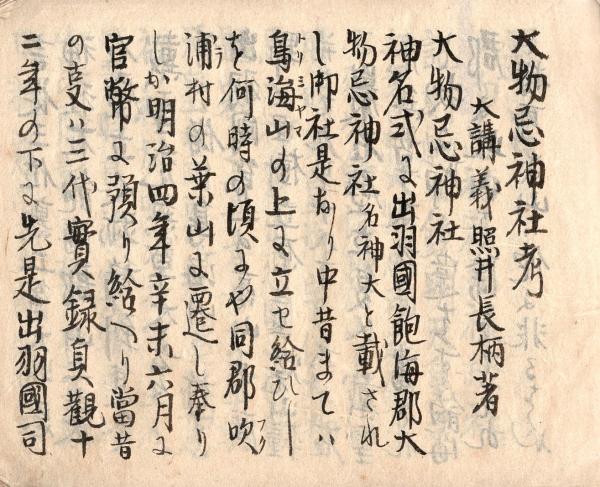 大物忌神社考
大講義照井長柄著
大物忌神社
神名式に出羽國飽海郡大
物忌神社名神大と載され
し御社是なり中昔まてハ
鳥海山の上に立セ給ひし
を何時の頃にや同郡吹
浦村の葉山に遷し奉り
しか明治四年辛未六月に
官幣に預り給へり當昔
の叓ハ三代實録貞觀十
二年の下に先是出羽國司